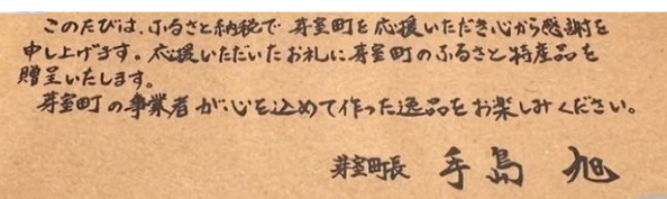 このたびは、ふるさと納税で芽室町を応援いただき心から感謝を
申し上げます。応援いただいたお礼に芽室町のふるさと特産品を
贈呈いたします。
芽室町の事業者が、心を込めて作った逸品をお楽しみください。
芽室町長 手島 旭